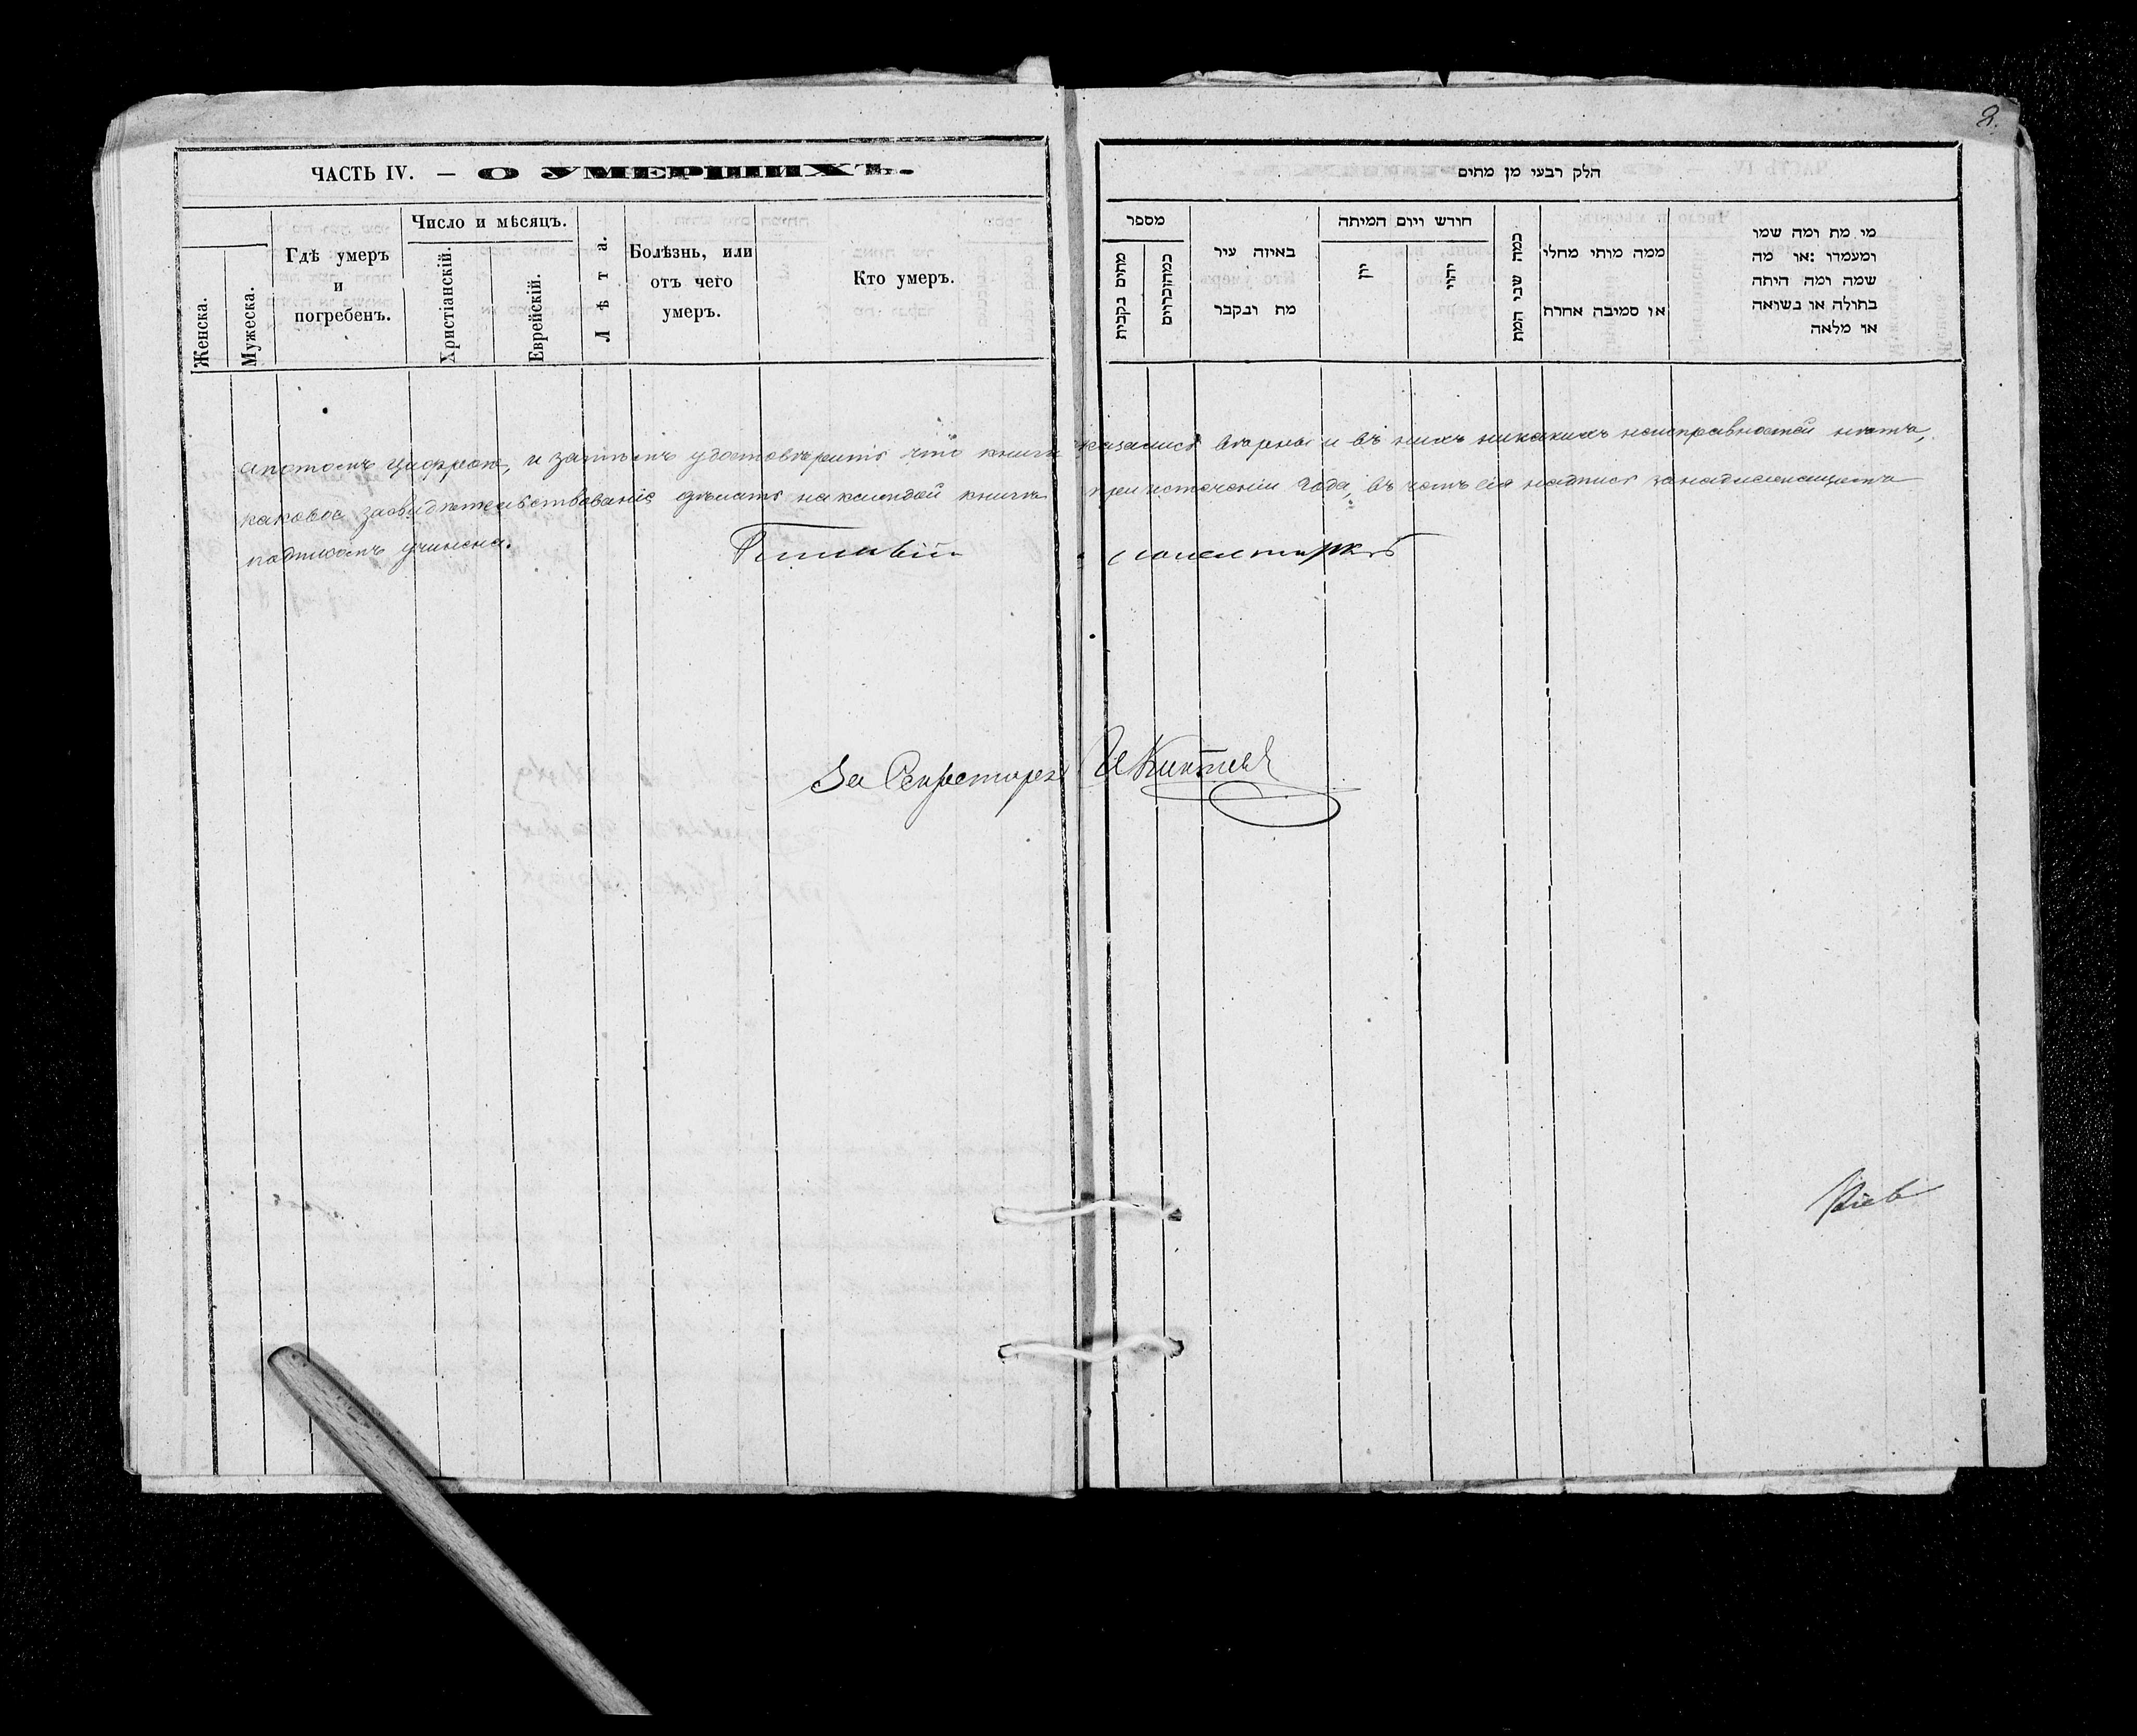 ЧАСТЬ IV. — О УМЕРШИХЪ.
Женска.
Мужеска.
Гдѣ умеръ
и
погребенъ.
Число и мѣсяцъ.
Христіанскій.
Еврейскій.
Лѣта.
Болѣзнь, или
отъ чего
умеръ.
Кто умеръ.
2.
חלק רבעי מן מתים
מספר
באיזה עיר
מת ונקבר
חודש ויום המיתה
יון
יהודי
כמה שני המת
ממה מותי מחלי
או סמיבה אחרת
מי מת ומה שמו
ומעמדו :או מה
שמה ומה היתה
בתולה או בשואה
או מלאה
а потомъ цифрою, и затѣмъ удостовѣрить что книги оказались вѣрны и въ нихъ никакихъ неисправностей нѣтъ,
каковое засвидѣтельствованіе дѣлать на каждой книгѣ при истеченіи года, въ чемъ сія надпись за надлежащимъ
подписомъ учинена.
За Секретаря